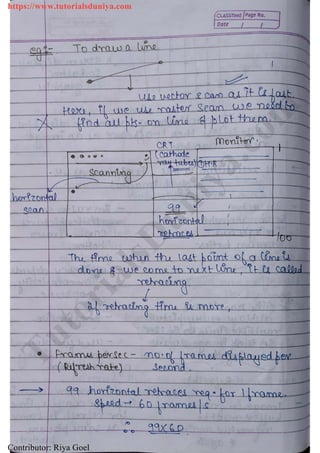 https://www.tutorialsduniya.com
CLASSTIME Page No.
Date / /
eg:- To draw a line
use vector scan as it is fast.
X Here, if we use raster scan we need to
find all pts. on line & plot them.
CRT
(Cathode
ray tubes)
Monitor.
1
Scanning
horizontal
scan
99
horizontal
retraces
100
The time when the last point of a line is
done & we come to next line, it is called
retracing
if retracing time is more,
• Frames per sec - no. of frames displayed per
(Refresh rate) second.
→ 99 horizontal retraces req. for 1 frame.
Speed → 60 frames/s
∴ 99x60.
Contributor: Riya Goel